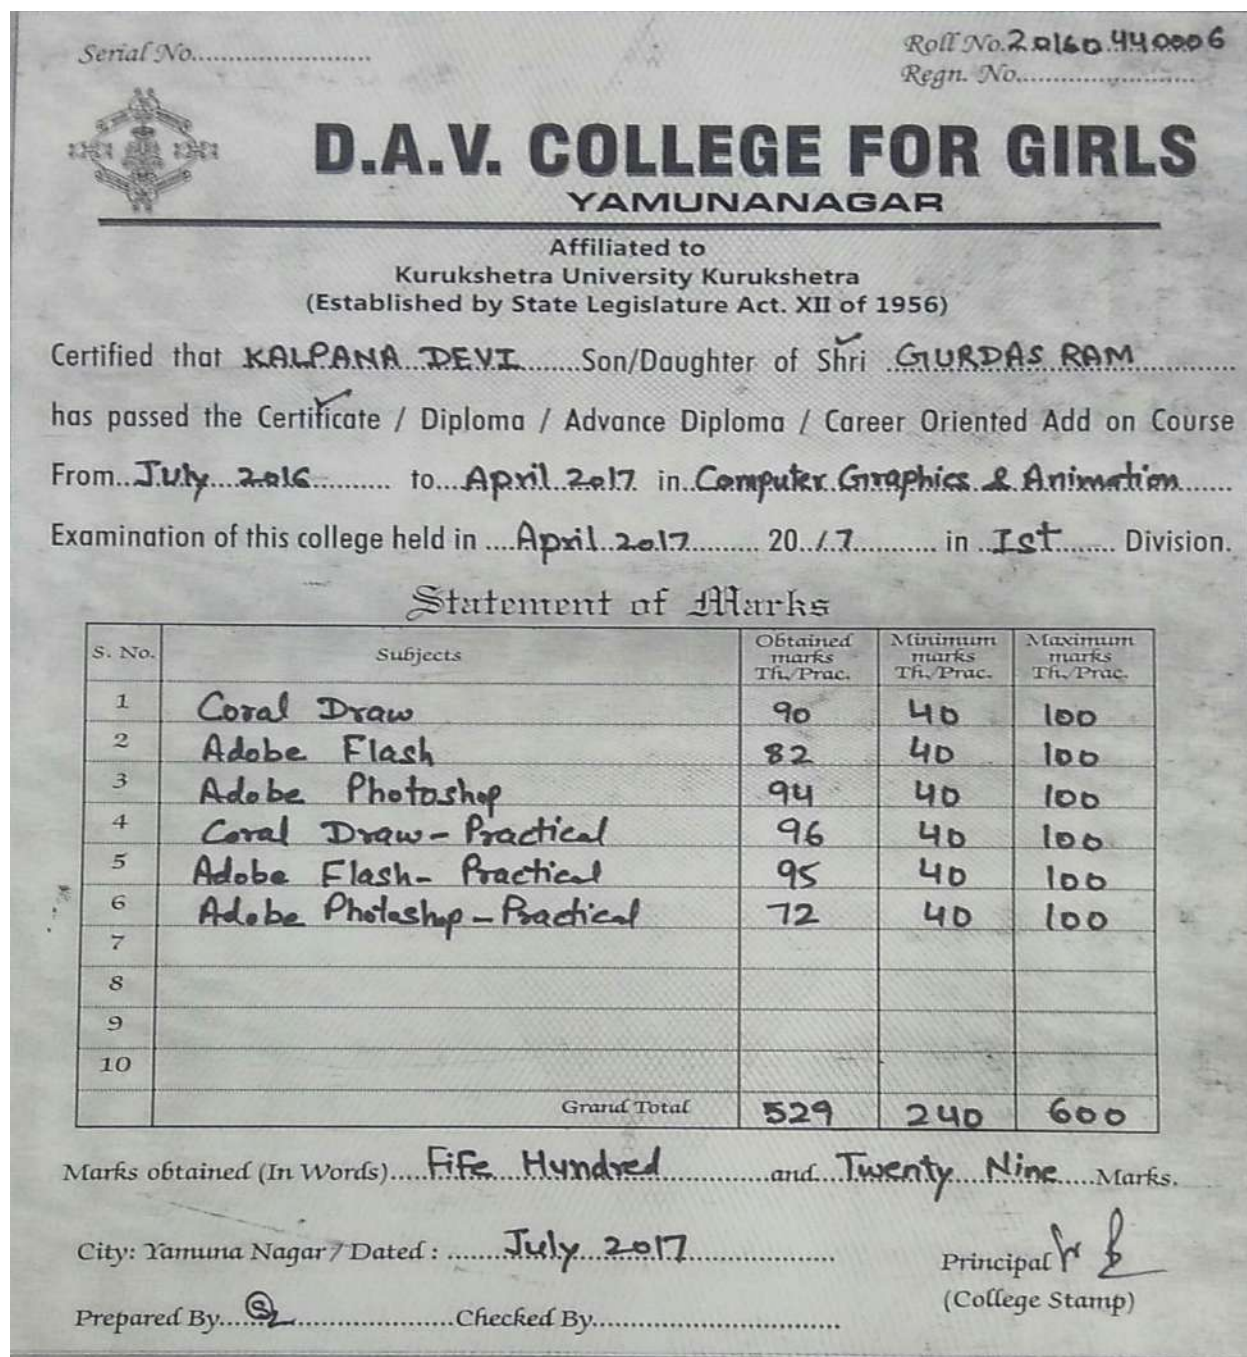 Serial No........................
Roll No.20160440006
Regn. No........................
D.A.V. COLLEGE FOR GIRLS
YAMUNANAGAR
Affiliated to
Kurukshetra University Kurukshetra
(Established by State Legislature Act. XII of 1956)
Certified that KALPANA DEVI Son/Daughter of Shri GURDAS RAM
has passed the Certificate / Diploma / Advance Diploma / Career Oriented Add on Course
From July 2016 to April 2017 in Computer Graphics & Animation
Examination of this college held in April 2017 2017 in Ist Division.
Statement of Marks
S. No. Subjects Obtained marks Th./Prac. Minimum marks Th./Prac. Maximum marks Th./Prac.
1 Coral Draw 90 40 100
2 Adobe Flash 82 40 100
3 Adobe Photoshop 94 40 100
4 Coral Draw - Practical 96 40 100
5 Adobe Flash - Practical 95 40 100
6 Adobe Photoshop - Practical 72 40 100
7
8
9
10
Grand Total 529 240 600
Marks obtained (In Words) Fife Hundred and Twenty Nine Marks.
City: Yamuna Nagar / Dated : July 2017
Principal
(College Stamp)
Prepared By Checked By